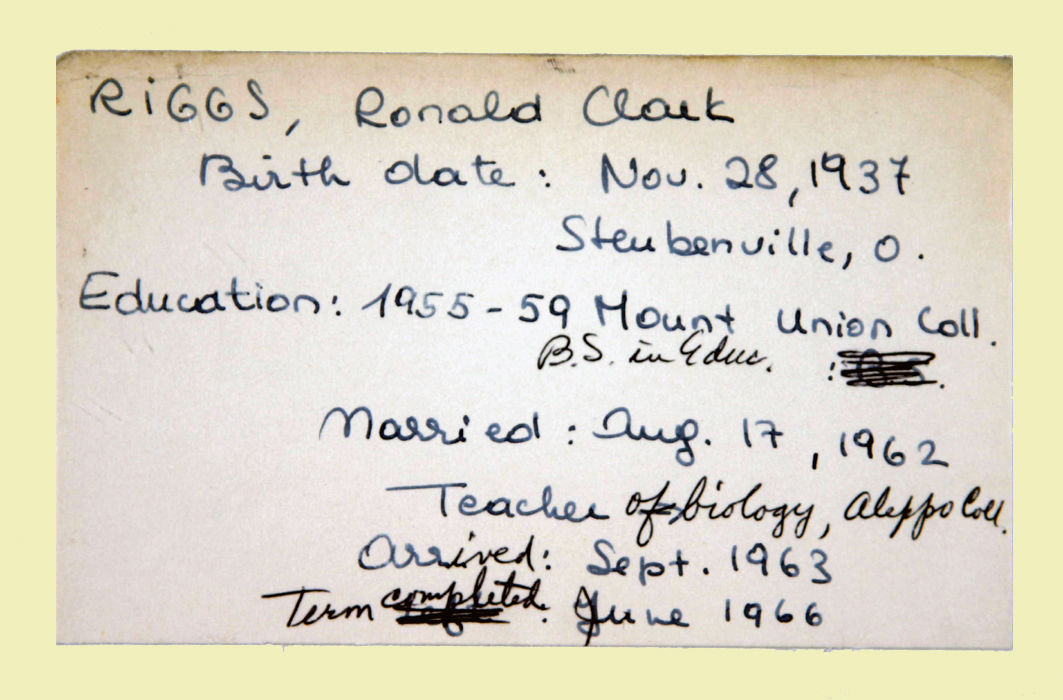 RIGGS, Ronald Clark
Birth date: Nov. 28, 1937
Steubenville, O.
Education: 1955-59 Mount Union Coll.
B.S. in Educ. :
Married: Aug. 17, 1962
Teacher of biology, Aleppo Coll.
Arrived: Sept. 1963
Term completed. June 1966